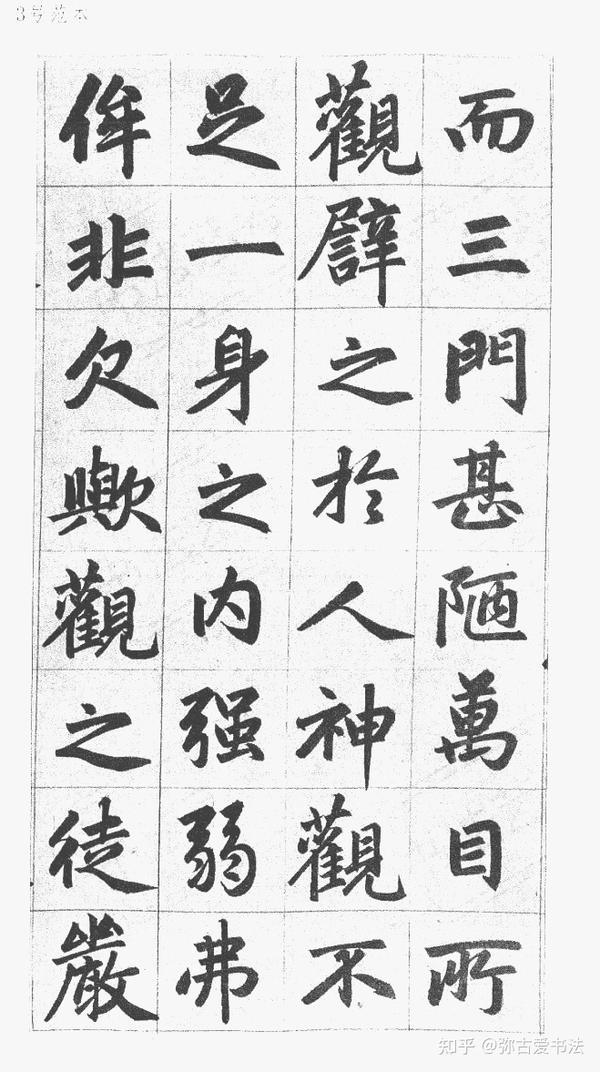 3号范本
而三門甚陋萬目所
觀譬之於人神觀不
足一身之内强弱弗
侔非欠歟觀之徒嚴
知乎 @弥古爱书法